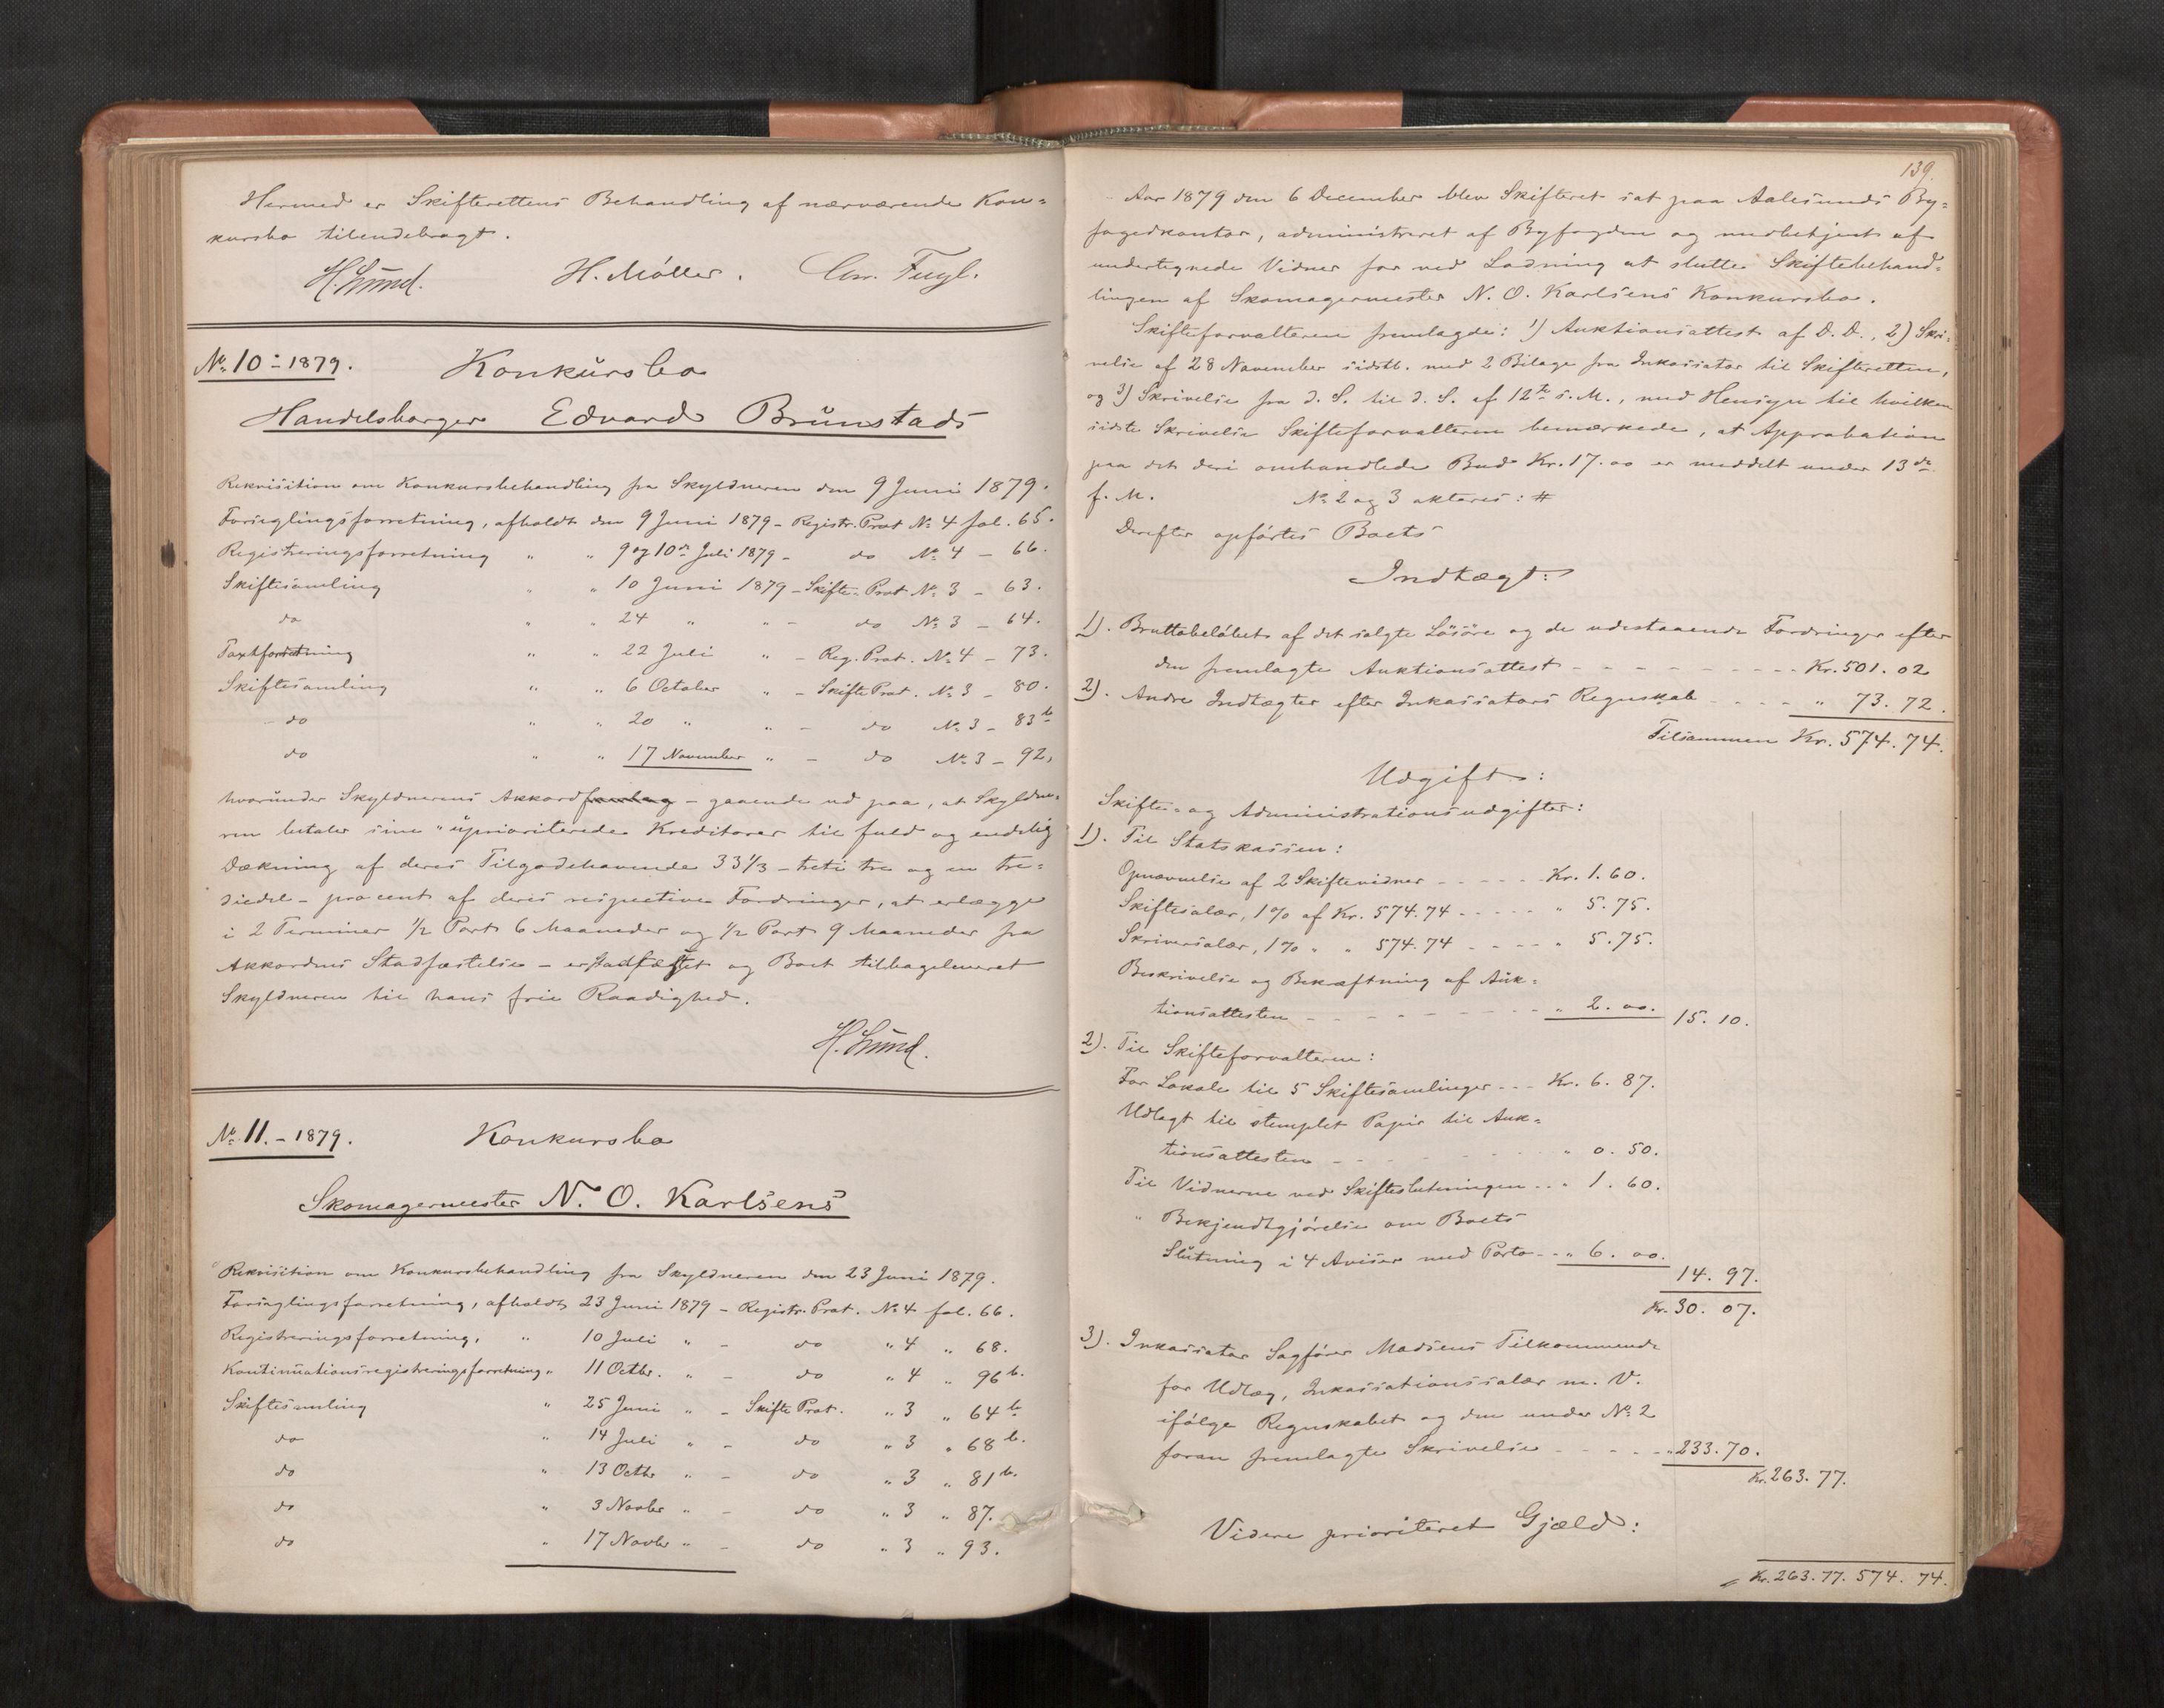 Hermed er Skifterettens Behandling af nærværende Kon-
kursbo tilendebragt.
H. Lund. H. Møller. Chr. Fugl.
No. 10 - 1879. Konkursbo
Handelsborger Edvard Brünstads
Rekvisition om Konkursbehandling fra Skyldneren den 9 Juni 1879.
Forseglingsforretning, afholdt den 9 Juni 1879 - Registr. Prot No. 4 fol. 65.
Registreringsforretning " " 9 og 10de Juli 1879 - do No. 4 - 66.
Skiftesamling " " 10 Juni 1879 - Skifte-Prot No. 3 - 63.
do " " 24 " " - do No. 3 - 64.
Taxtforretning " " 22 Juli " - Reg. Prot. No. 4 - 73.
Skiftesamling " " 6 October " - Skifte Prot. No. 3 - 80.
do " " 20 " " - do No. 3 - 83 b
do " " 17 November " - do No. 3 - 92,
hvorunder Skyldnerens Akkordforslag - gaaende ud paa, at Skyldne-
ren betaler sine uprioriterede Kreditorer til fuld og endelig
Dækning af deres Tilgodehavende 33 1/3 - treti tre og en tre-
diedel - procent af deres respective Fordringer, at erlægge
i 2 Terminer 1/2 Part 6 Maaneder og 1/2 Part 9 Maaneder fra
Akkordens Stadfæstelse - er stadfæstet og Boet tilbageleveret
Skyldneren til hans frie Raadighed.
H. Lund.
No. 11. - 1879. Konkursbo
Skomagermester N. O. Karlsens
Rekvisition om Konkursbehandling fra Skyldneren den 23 Juni 1879.
Forseglingsforretning, afholdt 23 Juni 1879 - Registr. Prot. No. 4 fol. 66.
Registreringsforretning, " 10 Juli " - do " 4 " 68.
Kontinuationsregistreringsforretning " 11 Octbr. " - do " 4 " 96 b.
Skiftesamling " 25 Juni " - Skifte Prot. " 3 " 64 b
do " 14 Juli " - do " 3 " 68 b.
do " 13 Octbr " - do " 3 " 81 b.
do " 3 Novbr " - do " 3 " 87.
do " 17 Novbr " - do " 3 " 93.
139.
Aar 1879 den 6 December blev Skifteret sat paa Aalesunds By-
fogedkontor, administreret af Byfogden og medbetjent af
undertegnede Vidner for ved Lodning at slutte Skiftebehand-
lingen af Skomagermester N. O. Karlsens Konkursbo.
Skifteforvalteren fremlagde: 1) Auktionsattest af D. D., 2) Skri-
velse af 28 November sidstl. med 2 Bilage fra Inkassator til Skifteretten,
og 3) Skrivelse fra d. S. til d. S. af 12te s. M., med Hensyn til hvilken
sidste Skrivelse Skifteforvalteren bemærkede, at Approbation
paa det deri omhandlede Bud Kr. 17.00 er meddelt under 13de
f. M. No. 2 og 3 akteres: #
Derefter opførtes Boets
Indtægt:
1). Bruttobeløbet af det solgte Løsøre og de udestaaende Fordringer efter
den fremlagte Auktionsattest - - - Kr. 501. 02
2). Andre Indtægter efter Inkassators Regnskab - - - " 73. 72.
Tilsammen Kr. 574. 74.
Udgift:
Skifte- og Administrationsudgifter:
1). Til Statskassen:
Opnævnelse af 2 Skiftevidner - - - Kr. 1. 60.
Skiftesalær, 1 % af Kr. 574.74 - - - " 5. 75.
Skriversalær, 1 % " " 574.74 - - - " 5. 75.
Beskrivelse og Bekræftning af Auk-
tionsattesten - - - " 2. 00. 15. 10.
2). Til Skifteforvalteren:
For Lokale til 5 Skiftesamlinger - - - Kr. 6. 87.
Udlagt til stemplet Papir til Auk-
tionsattesten - - - " 0. 50.
Til Vidnerne ved Skifteslutningen - - " 1. 60.
" Bekjendtgjørelse om Boets
Slutning i 4 Aviser med Porto - - " 6. 00.
14. 97.
Kr. 30. 07.
3). Inkassator Sagfører Madsens Tilkommende
for Udlæg, Inkassationssalær m. V.
ifølge Regnskabet og den under No. 2
foran fremlagte Skrivelse - - - " 233. 70.
Kr. 263. 77.
Videre prioriteret Gjæld:
Kr. 263. 77. 574. 74.